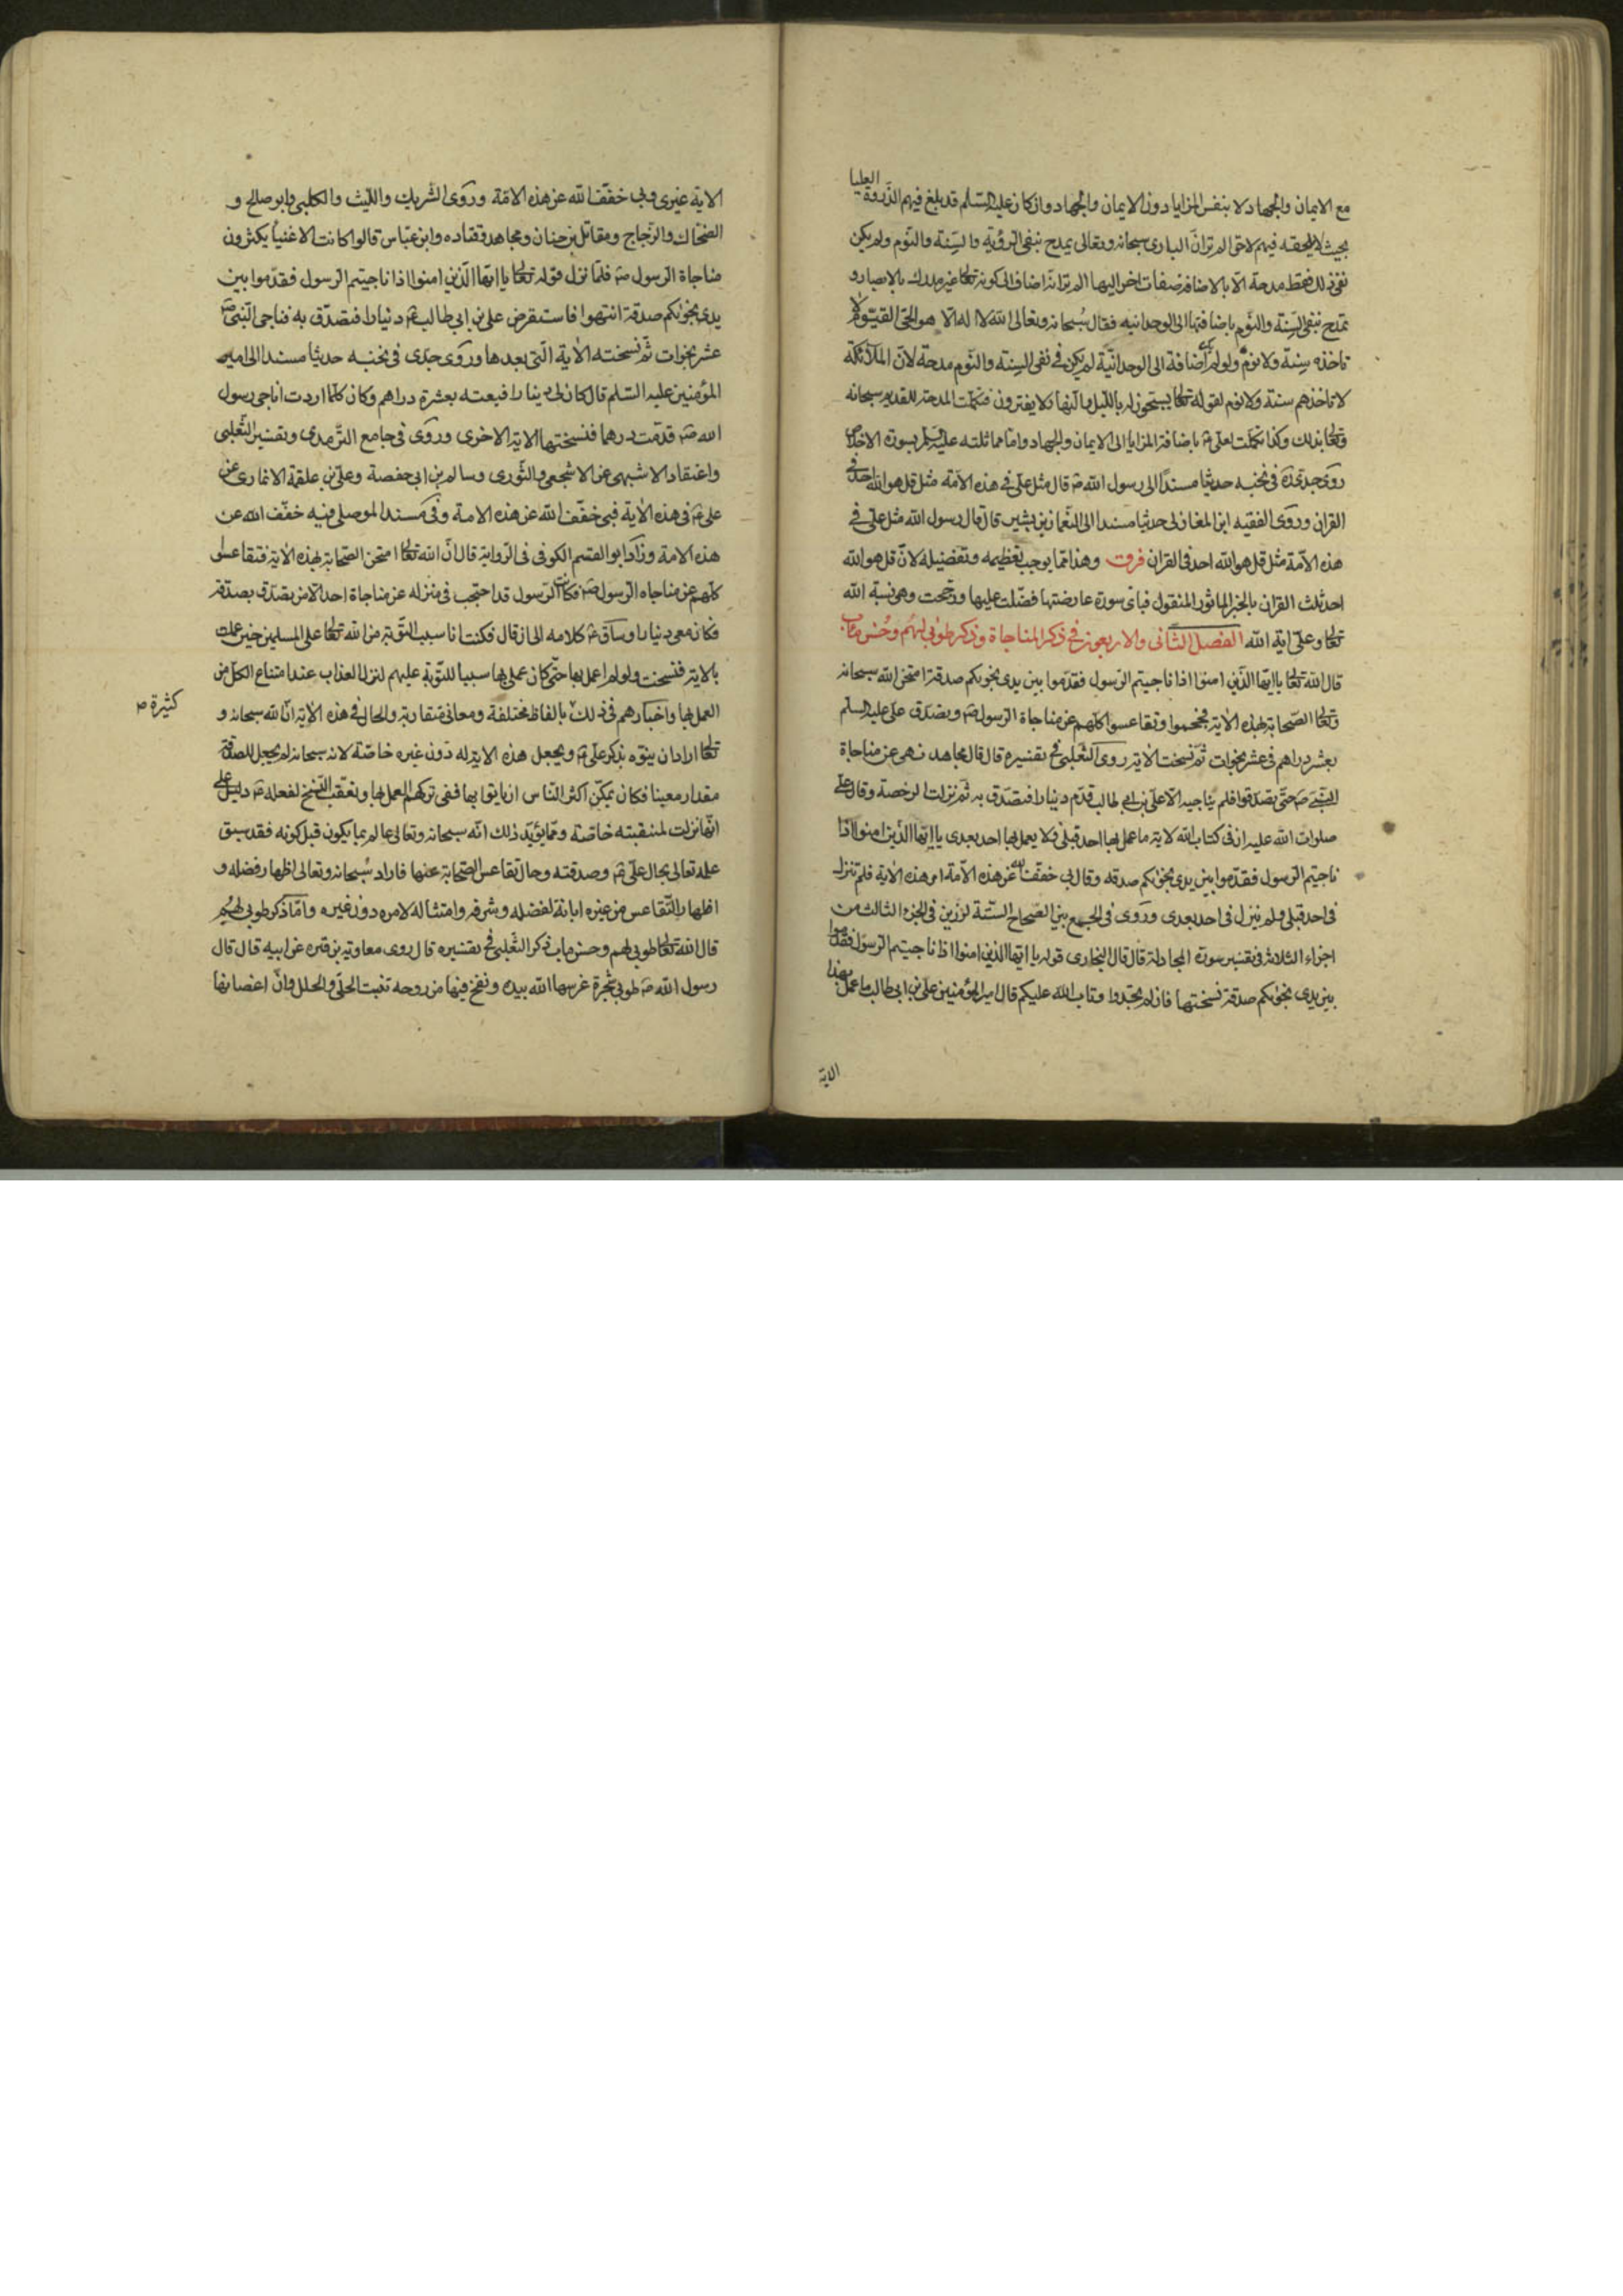 مع الايمان والجهاد لا بنفس المزايا دون الايمان والجهاد وان كان عليه السلم قد بلغ فيهم الذروة العليا
بحيث لا يلحقه فيهم لاحق الم تر ان البارى سبحانه وتعالى يمدح بنفى الرؤية والسِنة والنوم ولم يكن
نفى ذلك فقط مدحة الا بالاضافة صفات اخر اليها الم تر انه اضاف الى كونه تعالى غير مدرك بالابصار و
تمدح بنفى السِنة والنوم باضافتها الى الوحدانيه فقال سُبحانه وتعالى الله لا اله الا هو الحى القيّوم لا
تاخذه سِنة ولا نوم ولو لم اضافة الى الوحدانيّة لم يكن فى نفى السِنة والنوم مدحة لانّ الملآئكة
لا تاخذهم سنة ولا نوم لقوله تعالى يسبّحون له بالليل والنهار لا يفترون فتكملت المدحة للقديم سبحانه
وتعالى بذلك وكذا تكملت لعلى ع باضافة المزايا الى الايمان والجهاد واما مماثلته عليه السلم بسورة الاخلاص
روى جدى ره فى نخبه حديثا مسندًا الى رسول الله ص قال مثل علّى فى هذه الامّة مثل قل هو الله احد فى
القران وروى الفقيه ابن المغازلى حديثا مسندا الى النعمان بن بشير قال قال رسول الله مثل على فى
هذه الامّة مثل قل هو الله احد فى القران فرقت وهذا ممّا يوجب تعظيمه وتفضيله لانّ قل هو الله
احد ثلث القران بالخبر الماثور المنقول فباى سورة عارضتها فضّلت عليها ورجّحت وهى نسبة الله
تعالى وعلّى اية الله الفصل الثانى والاربعون فى ذكر المناجاة وذكر طوبى لهُم وحُسن مآب
قال الله تعالى يا ايها الذين امنوا اذا ناجيتم الرسول فقدّموا بين يدى نجوىكم صدقة امتحن الله سبحانه
وتعالى الصّحابة بهذه الاية فجمحموا وتقاعسوا كلّهم عن مناجاة الرسول ص وتصدّق على عليه السلم
بعشر دراهم فى عشر نجوات ثم نسخت الاية روى الثعلبى فى تفسيره قال قال مجاهد نهى عن مناجاة
النبّى ص حتّى يتصدقوا فلم يناجيه الا علّى بن ابى طالب قدّم دينارا فتصدّق به ثم نزلت الرخصة وقال على
صلوات الله عليه ان فى كتاب الله لاية ما عمل بها احد قبلى ولا يعمل بها احد بعدى يا ايها الذين امنوا اذا
ناجيتم الرسول فقدّموا بين يدى نجوىكم صدقه وقال بى خفف الله عن هذه الامّة امر هذه الاية فلم تنزل
فى احد قبلى ولم تنزل فى احد بعدى وروى فى الجمع بين الصحاح الستّة لرزين فى الجزء الثالث من
اجزاء الثلاثة فى تفسير سورة المجادلة قال قال البخارى قوله يا ايها الذين امنوا اذا ناجيتم الرسول فقدموا
بين يدى نجوىكم صدقة نسختها فان لم تجدوا وتاب الله عليكم قال امير المؤمنين على بن ابى طالب ما عمل بهذا
الاية
الاية غيرى وبى خفّف الله عن هذه الامّة وروى الشريك والليث والكلبى وابو صالح و
الضحاك والزجاج ومقاتل بن حنان ومجاهد وقتاده وابن عبّاس قالوا كانت الاغنياء يكثرون
مناجاة الرسول ص فلمّا نزل قوله تعالى يا ايّها الذين امنوا اذا ناجيتم الرسول فقدّموا بين
يدى نجوىكم صدقة انتهوا فاستقرض على بن ابى طالب ع دنيارا فتصدّق به فناجى النبى ص
عشر نجوات ثم نسخته الاية الّتى بعدها وروى جدّى فى نخبه حديثا مسندا الى امير
المؤمنين عليه السّلم قال كان لى دينارا فبعته بعشرة دراهم وكان كلّما اردت اناجى رسول
الله ص قدّمت درهما فنسختها الاية الاخرى وروى فى جامع الترمدى وتفسير الثعلبى
واعتقاد الاشنهى عن الاشجعى والثورى وسالم بن ابى حفصة وعلى بن علقمة الانمارى عن
على ع فى هذه الاية فبى خفّف الله عن هذه الامة وفى مسند الموصلى فبه خفّف الله عن
هذه الامة وزاد ابو القسم الكوفى فى الرواية قال انّ الله تعالى امتحن الصحابة بهذه الاية فتقاعس
كلّهم عن مناجاه الرسول ص فكان الرسول قد احتجب فى منزله عن مناجاة احد الا من تصدّق بصدقة
فكان معى دينار وساق ع كلامه الى ان قال فكنت انا سبب التّوبة من الله تعالى على المسلمين حين عملت
بالاية فنسخت ولو لم اعمل بها حتّى كان عملى بها سببا للتّوبة عليهم لنزل العذاب عند امتناع الكل من
العمل بها واخبارهم فى ذلك بالفاظ مختلفة ومعانى متقاربة والحال فى هذه الاية انّ الله سبحانه و
كثيرة ص
تعالى اراد ان ينوّه بذكر علّى ع ويجعل هذه الاية له دون غيره خاصّة لانه سبحانه لم يجعل للصدقة
مقدار معينا فكان يمكن اكثر الناس ان ياتوا بها ففى تركهم العمل بها وتعقب النّسخ لفعله ع دليل على
انّها نزلت لمنقبته خاصّة وممّا يؤيّد ذلك انّه سبحانه وتعالى عالم بما يكون قبل كونه فقد سبق
علمه تعالى بحال علّى ع وصدقته وحال تقاعس الصّحابة عنها فاراد سُبحانه وتعالى اظهار فضله و
اظهار التّقاعس من غيره ابانة لفضله وشرفه وامتثاله لامره دون غيره وامّا ذكر طوبى لهُم
قال الله تعالى طوبى لهم وحسن مآب ذكر الثعلبى فى تفسيره قال روى معاوية بن قره عن ابيه قال قال
رسول الله ص طوبى شجرة غرسها الله بيده ونفخ فيها من روحه تنبت الحلّى والحلل وانّ اغصانها